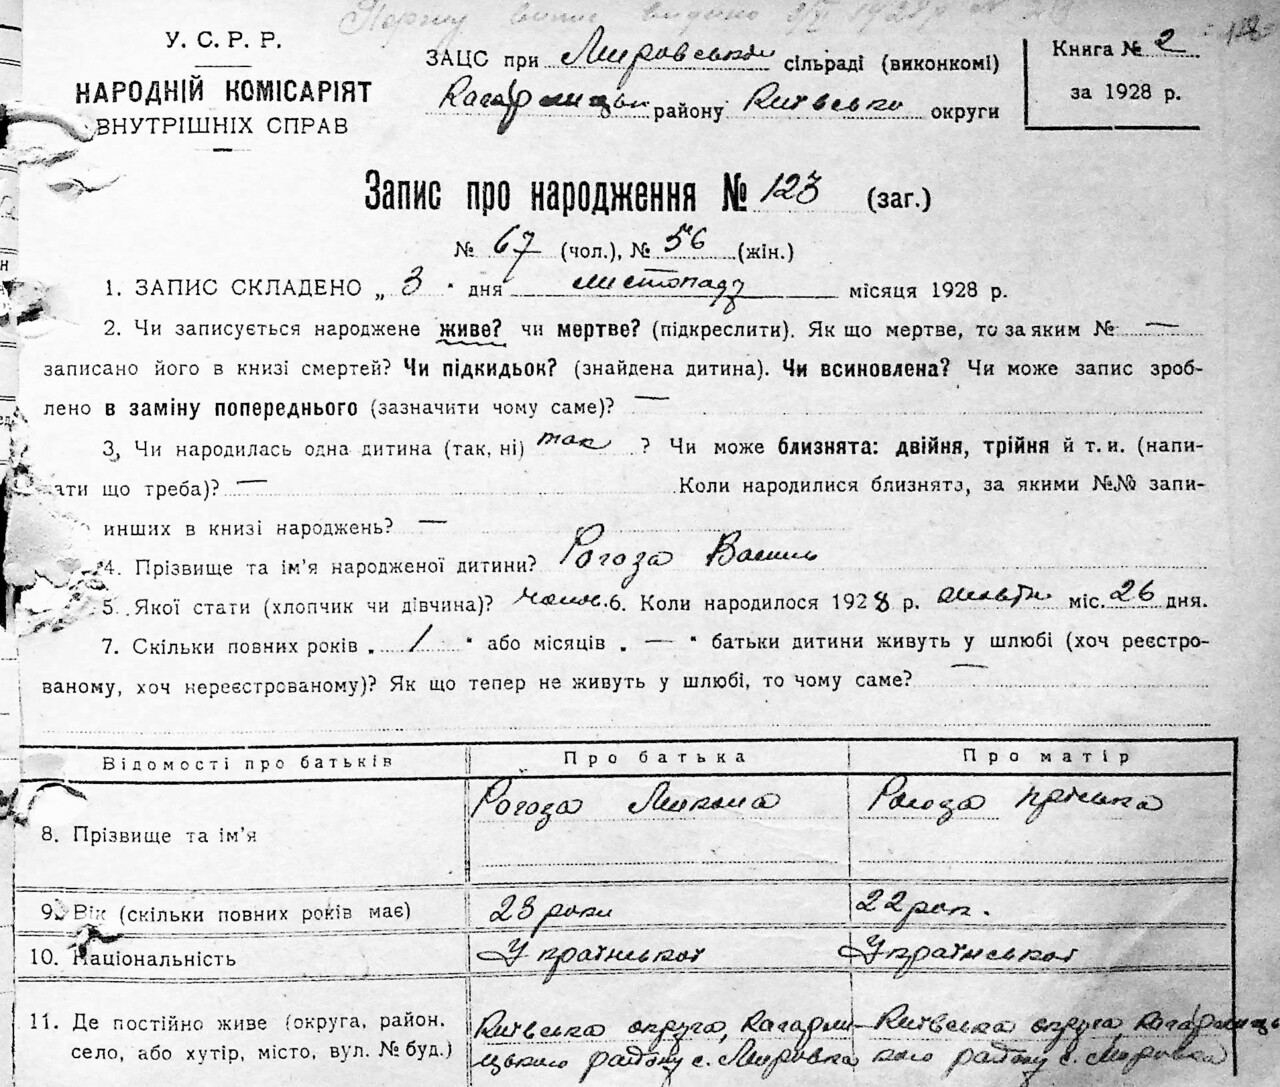 Першу випис видано 1928 р. №
У. С. Р. Р.
НАРОДНІЙ КОМІСАРІЯТ
ВНУТРІШНІХ СПРАВ
ЗАЦС при Мировській сільраді (виконкомі)
Кагарлицьк району Київсько округи
Книга № 2
за 1928 р.
Запис про народження № 123 (заг.)
№ 67 (чол.), № 56 (жін.)
1. ЗАПИС СКЛАДЕНО „ 3 " дня листопаду місяця 1928 р.
2. Чи записується народжене живе? чи мертве? (підкреслити). Як що мертве, то за яким № —
записано його в книзі смертей? Чи підкидьок? (знайдена дитина). Чи всиновлена? Чи може запис зроб-
лено в заміну попереднього (зазначити чому саме)? —
3, Чи народилась одна дитина (так, ні) так ? Чи може близнята: двійня, трійня й т. и. (напи-
ати що треба)? — Коли народилися близнята, за якими №№ запи-
инших в книзі народжень? —
4. Прізвище та ім'я народженої дитини? Рогоза Василь
5. Якої стати (хлопчик чи дівчина)? чолов. 6. Коли народилося 1928 р. жовтн міс. 26 дня.
7. Скільки повних років „ 1 " або місяців „ — " батьки дитини живуть у шлюбі (хоч реєстро-
ваному, хоч нереєстрованому)? Як що тепер не живуть у шлюбі, то чому саме? —
Відомості про батьків Про батька Про матір
8. Прізвище та ім'я Рогоза Микола Рогоза Пріська
9. Вік (скільки повних років має) 23 роки 22 рок.
10. Національність Української Української
11. Де постійно живе (округа, район. Київська округа, Кагарли- Київська округа Кагарлиць
село, або хутір, місто, вул. № буд.) цького району с. Мировка кого району с. Мировка